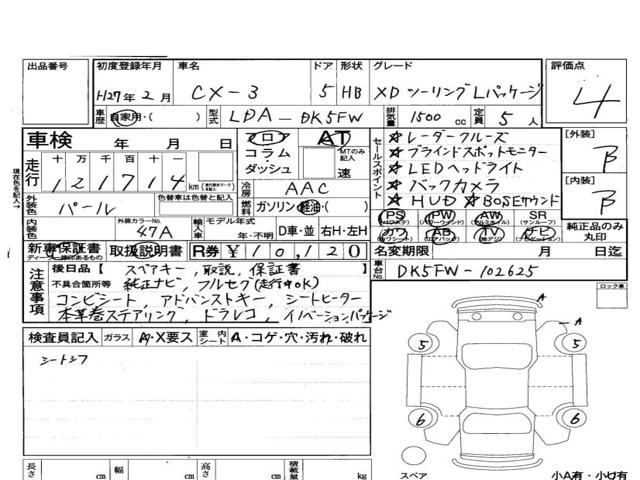 出品番号 初度登録年月 車名 ドア 形状 グレード 評価点
H27年2月 CX-3 5 HB XD ツーリング Lパッケージ 4
車歴 自家用・( ) 型式 LDA-DK5FW 排気量 1500 cc 定員 5人
車検 年 月 日 フロア AT
コラム MTのみ記入
ダッシュ 速
走行 十万千百十一
121714 km
冷房 AAC
外装色 パール 色替車は色替と記入
燃料 ガソリン・軽油・( )
内装色 外装カラーNo. 47A 輸入車 モデル年式 年・不明 D車・並 右H・左H
セールスポイント
★レーダークルーズ
★ブラインドスポットモニター
★LEDヘッドライト
★バックカメラ
★HUD ★BOSEサウンド
[外装] B
[内装] B
PS PW AW SR
カワ AB TV ナビ
純正品のみ丸印
新車保証書 取扱説明書 R券 ¥10,120 名変期限 月 日迄
車台No. DK5FW-102625
注意事項
後日品【 スペアキー, 取説, 保証書
不具合箇所等 純正ナビ, フルセグ(走行中OK)
コンビシート, アドバンストキー, シートヒーター
本革巻ステアリング, ドラレコ, イノベーションパッケージ
ロック車
検査員記入 ガラス A・X要ス 室内 シート A・コゲ・穴・汚れ・破れ
シートシワ
A
A
5 5
6 6
スペア
小A有・小U有
長さ cm 幅 cm 高さ cm 積載量 kg